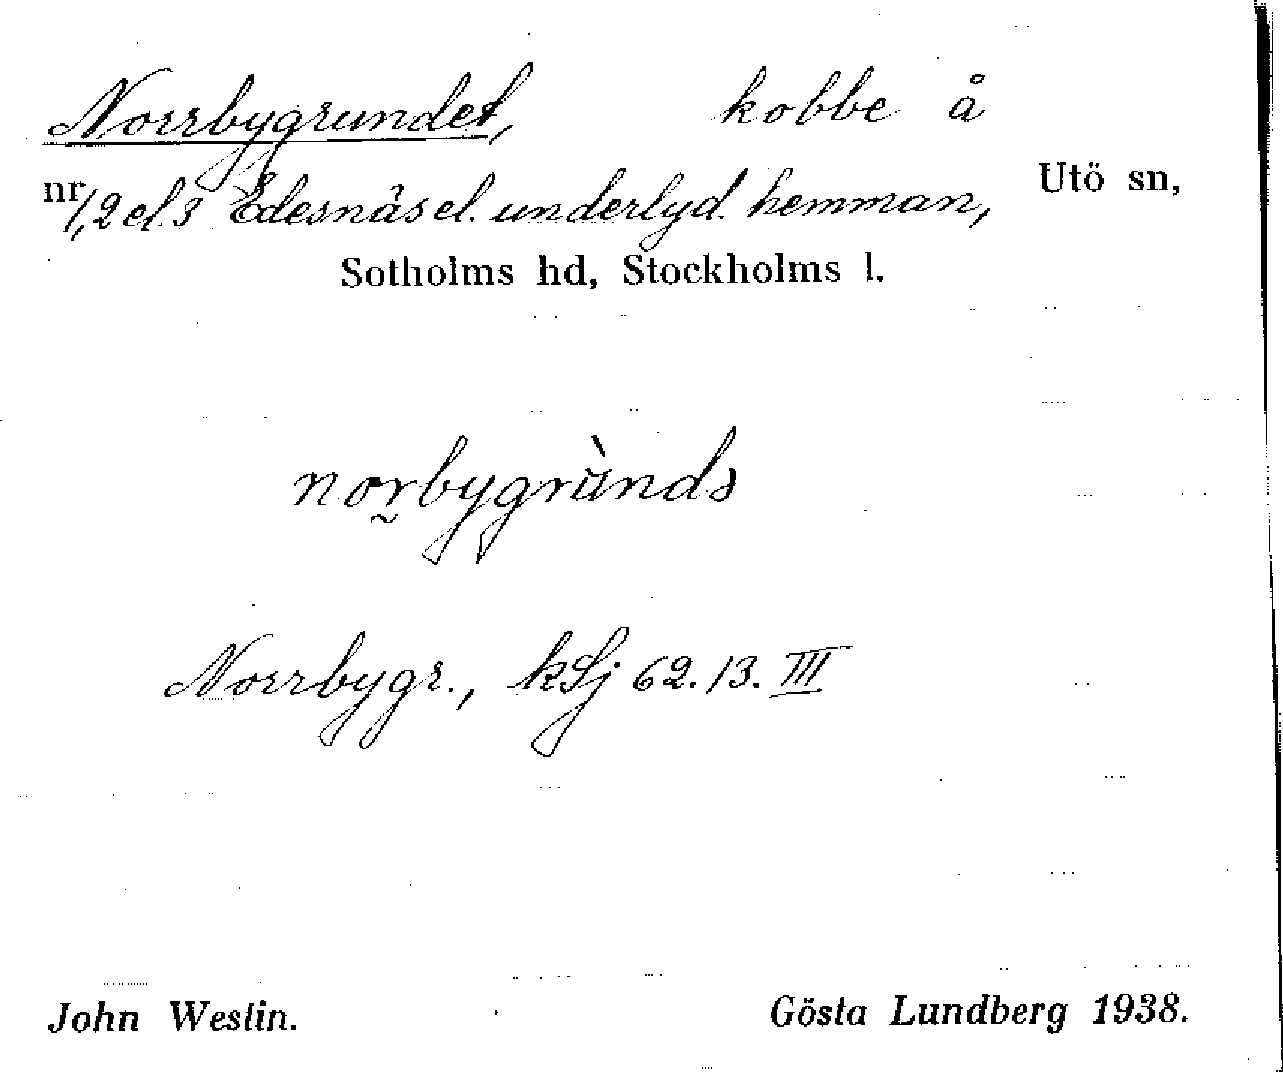 Norrbygrundet, kobbe å
nr 1,2 el. 3 Edesnäs el. underlyd. hemman, Utö sn,
Sotholms hd, Stockholms l.
norbygrùndə
Norrbygr., kSj 62.13.III
John Westin. Gösta Lundberg 1938.